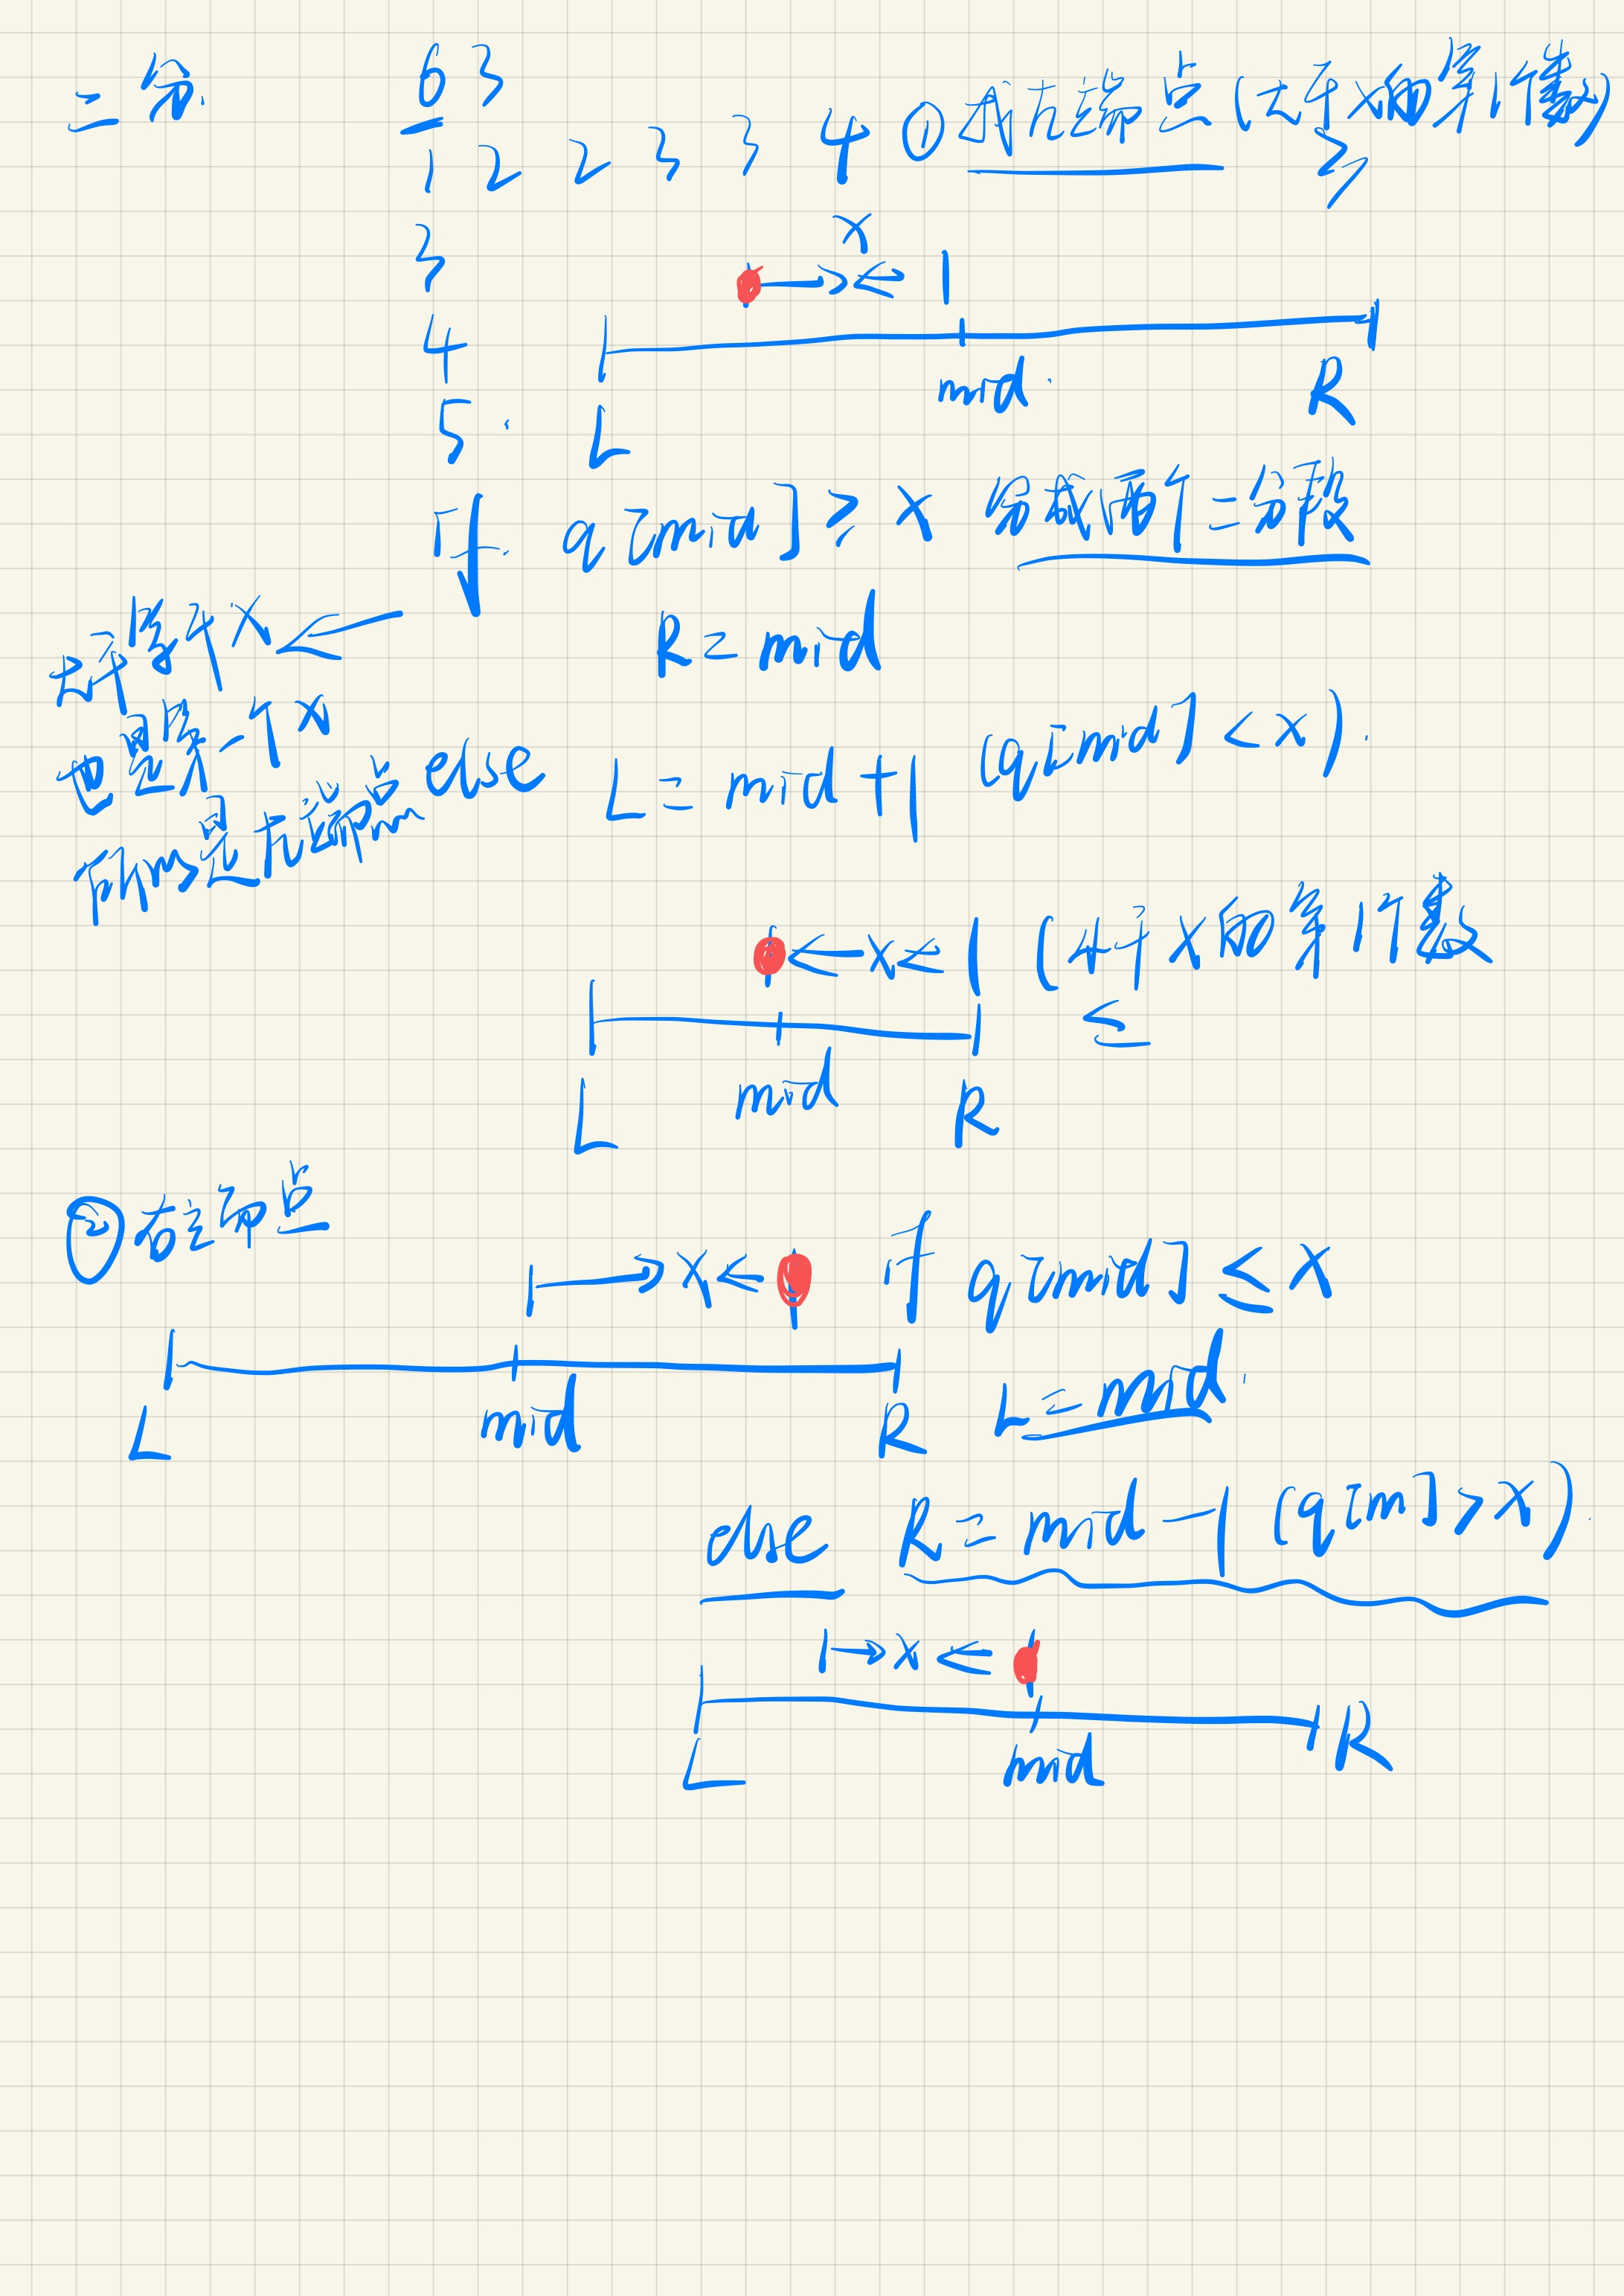 二分.
6 3
1 2 2 3 3 4
3
4
5.
① 找左端点 (大于x的第1个数)
≥
x
L mid. R
if q[mid] ≥ x 分成两个二分段
R = mid
大于等于x
也是第一个x
所以是左端点
else L = mid + 1 (q[mid] < x).
x (小于x的第1个数
≤
L mid R
② 右端点
x
if q[mid] ≤ x
L mid R
L = mid.
else R = mid - 1 (q[m] > x).
x
L mid R